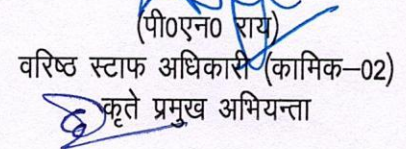 (पी०एन० राय)
वरिष्ठ स्टाफ अधिकारी (कामिक–02)
कृते प्रमुख अभियन्ता